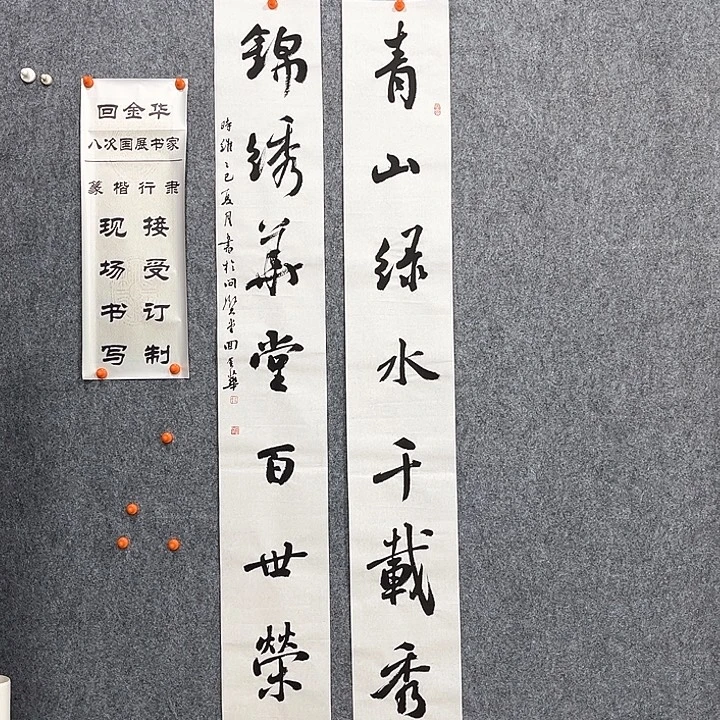 青山绿水千載秀
錦绣華堂百世榮
時維乙巳夏月書於问堂回金華
回金华
八次国展书家
篆楷行隶
现场书写
接受订制